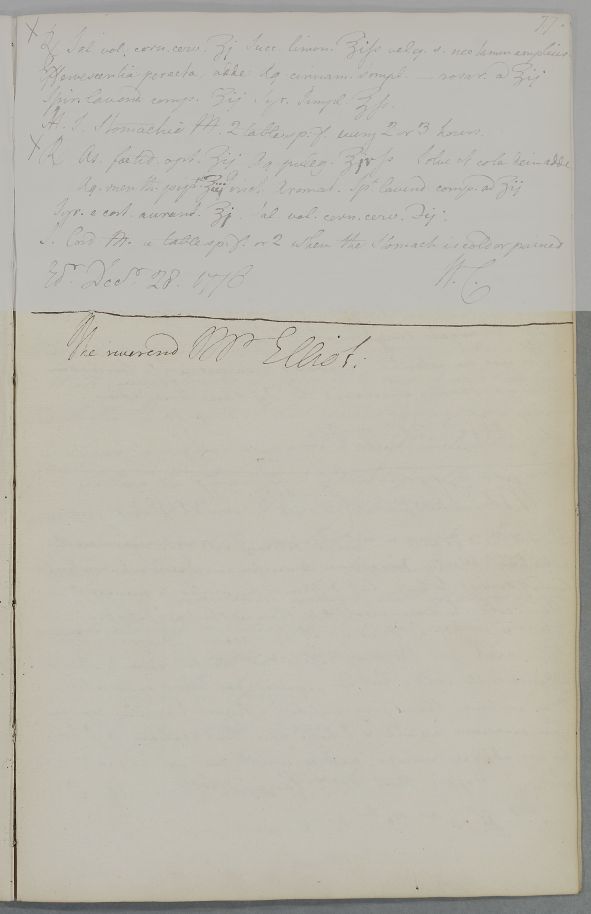 77.
X ℞ Sal. vol. corn. cerv. ʒj Succ. limon. ℥iſs vel q. s. nec tamen amplius.
Effervescentia peracta, adde Aq. cinnam. simpl. — rosar. a ℥ij
Spir. lavend. comp. ʒij Syr. simpl. ℥ſs.
M. S. Stomachic M. 2 tablesp.f. every 2 or 3 hours.
X ℞ As. foetid. opt. ʒij Aq. puleg. Solve et cola dein adde
Aq. menth. pip. ℥iij Tinct. Aromat. Spt. lavend. comp. a ʒij
Syr. e cort. aurant. ℥j. Sal. vol. corn. cerv. ℈ij.
S. Cord. M. a tablesp.f. or 2 when the Stomach is cold or pained
Edr. Decr. 28. 1778 W. C.
The reverend Mr Elliot: